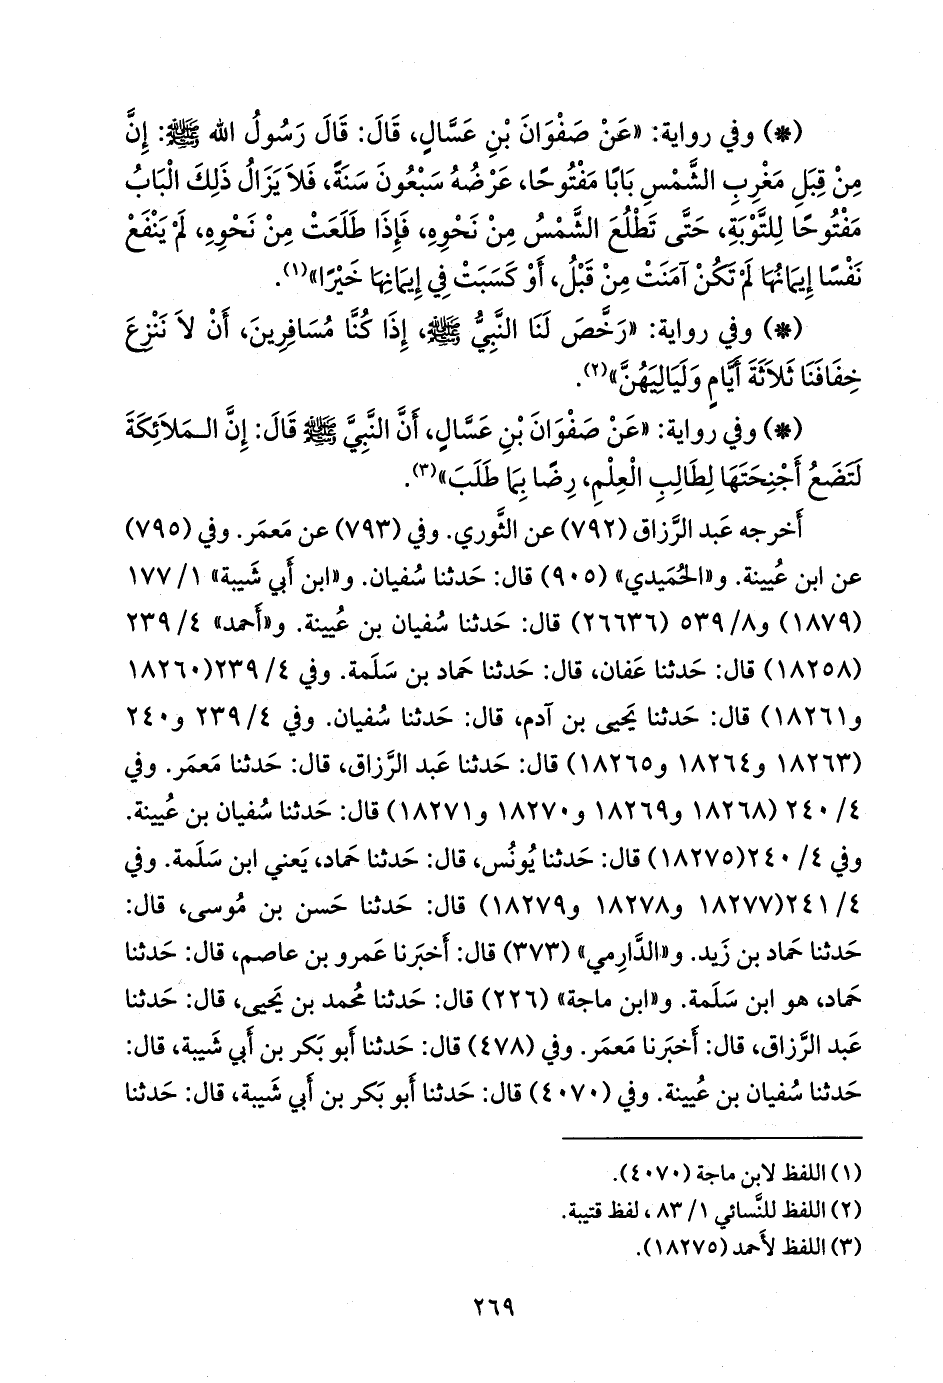 (*) وفي رواية: «عَنْ صَفْوَانَ بْنِ عَسَّالٍ، قَالَ: قَالَ رَسُولُ الله ﷺ: إِنَّ
مِنْ قِبَلِ مَغْرِبِ الشَّمْسِ بَابًا مَفْتُوحًا، عَرْضُهُ سَبْعُونَ سَنَةً، فَلاَ يَزَالُ ذَلِكَ الْبَابُ
مَفْتُوحًا لِلتَّوْبَةِ، حَتَّى تَطْلُعَ الشَّمْسُ مِنْ نَحْوِهِ، فَإِذَا طَلَعَتْ مِنْ نَحْوِهِ، لَمْ يَنْفَعْ
نَفْسًا إِيمَانُهَا لَمْ تَكُنْ آمَنَتْ مِنْ قَبْلُ، أَوْ كَسَبَتْ فِي إِيمَانِهَا خَيْرًا»(١).
(*) وفي رواية: «رَخَّصَ لَنَا النَّبِيُّ ﷺ، إِذَا كُنَّا مُسَافِرِينَ، أَنْ لاَ نَنْزِعَ
خِفَافَنَا ثَلاَثَةَ أَيَّامٍ وَلَيَالِيَهُنَّ»(٢).
(*) وفي رواية: «عَنْ صَفْوَانَ بْنِ عَسَّالٍ، أَنَّ النَّبِيَّ ﷺ قَالَ: إِنَّ الـمَلاَئِكَةَ
لَتَضَعُ أَجْنِحَتَهَا لِطَالِبِ الْعِلْمِ، رِضًا بِمَا طَلَبَ»(٣).
أَخرجه عَبد الرَّزاق (٧٩٢) عن الثَّوري. وفي (٧٩٣) عن مَعمَر. وفي (٧٩٥)
عن ابن عُيينة. و«الحُمَيدي» (٩٠٥) قال: حَدثنا سُفيان. و«ابن أَبي شَيبة» ١/ ١٧٧
(١٨٧٩) و٨/ ٥٣٩ (٢٦٦٣٦) قال: حَدثنا سُفيان بن عُيينة. و«أَحمد» ٤/ ٢٣٩
(١٨٢٥٨) قال: حَدثنا عَفان، قال: حَدثنا حَماد بن سَلَمة. وفي ٤/ ٢٣٩(١٨٢٦٠
و١٨٢٦١) قال: حَدثنا يَحيى بن آدم، قال: حَدثنا سُفيان. وفي ٤/ ٢٣٩ و٢٤٠
(١٨٢٦٣ و١٨٢٦٤ و١٨٢٦٥) قال: حَدثنا عَبد الرَّزاق، قال: حَدثنا مَعمَر. وفي
٤/ ٢٤٠ (١٨٢٦٨ و١٨٢٦٩ و١٨٢٧٠ و١٨٢٧١) قال: حَدثنا سُفيان بن عُيينة.
وفي ٤/ ٢٤٠(١٨٢٧٥) قال: حَدثنا يُونُس، قال: حَدثنا حَماد، يَعني ابن سَلَمة. وفي
٤/ ٢٤١(١٨٢٧٧ و١٨٢٧٨ و١٨٢٧٩) قال: حَدثنا حَسن بن مُوسى، قال:
حَدثنا حَماد بن زَيد. و«الدَّارِمي» (٣٧٣) قال: أَخبَرنا عَمرو بن عاصم، قال: حَدثنا
حَماد، هو ابن سَلَمة. و«ابن ماجة» (٢٢٦) قال: حَدثنا مُحمد بن يَحيى، قال: حَدثنا
عَبد الرَّزاق، قال: أَخبَرنا مَعمَر. وفي (٤٧٨) قال: حَدثنا أَبو بَكر بن أَبي شَيبة، قال:
حَدثنا سُفيان بن عُيينة. وفي (٤٠٧٠) قال: حَدثنا أَبو بَكر بن أَبي شَيبة، قال: حَدثنا
(١) اللفظ لابن ماجة (٤٠٧٠).
(٢) اللفظ للنَّسائي ١/ ٨٣، لفظ قتيبة.
(٣) اللفظ لأَحمد (١٨٢٧٥).
٢٦٩